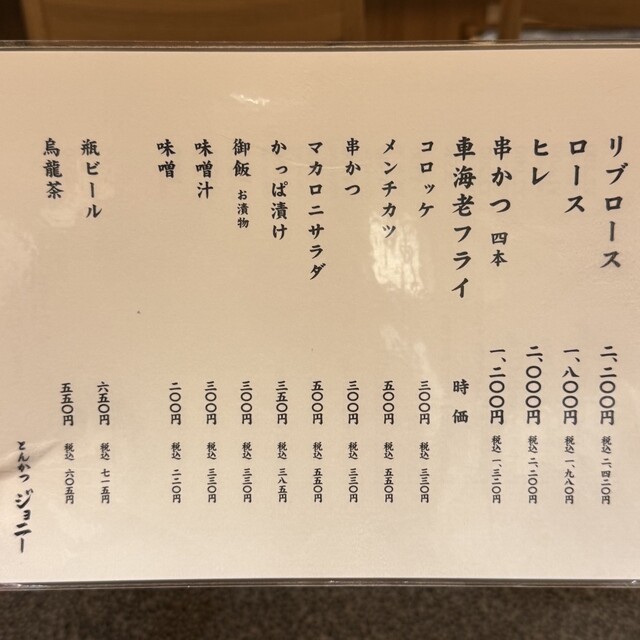 リブロース 二、二〇〇円 税込 二、四二〇円
ロース 一、八〇〇円 税込 一、九八〇円
ヒレ 二、〇〇〇円 税込 二、二〇〇円
串かつ 四本 一、二〇〇円 税込 一、三二〇円
車海老フライ 時価
コロッケ 三〇〇円 税込 三三〇円
メンチカツ 五〇〇円 税込 五五〇円
串かつ 三〇〇円 税込 三三〇円
マカロニサラダ 五〇〇円 税込 五五〇円
かっぱ漬け 三五〇円 税込 三八五円
御飯 お漬物 三〇〇円 税込 三三〇円
味噌汁 三〇〇円 税込 三三〇円
味噌 二〇〇円 税込 二二〇円
瓶ビール 六五〇円 税込 七一五円
烏龍茶 五五〇円 税込 六〇五円
とんかつ ジョニー